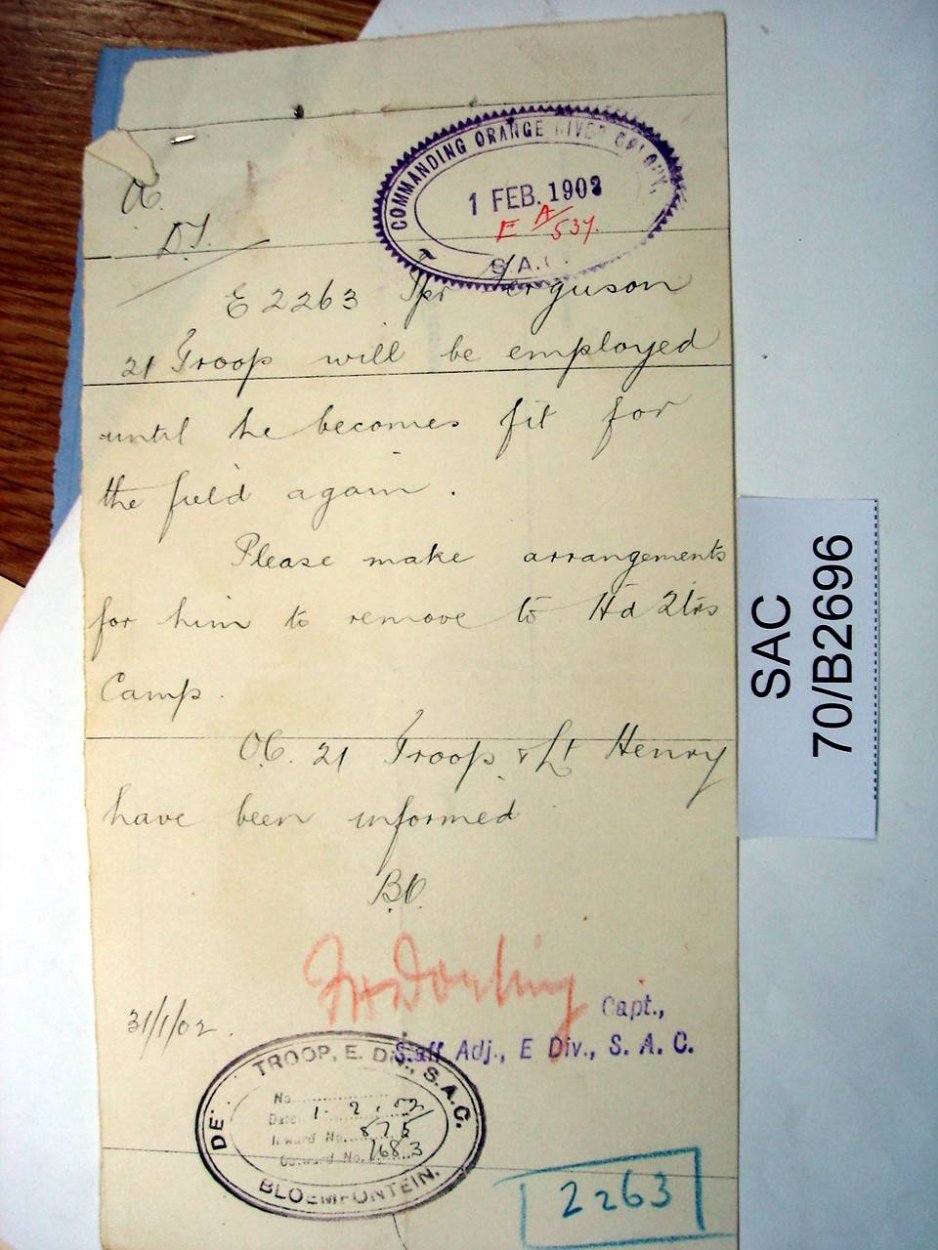 COMMANDING ORANGE RIVER COLONY.
1 FEB. 1902
E A/537.
S.A.C.
OC.
D.T.
E 2263 Tpr Ferguson
21 Troop will be employed
until he becomes fit for
the field again.
Please make arrangements
for him to remove to Hd Qtrs
Camp.
O.C. 21 Troop & Lt Henry
have been informed
B.O.
31/1/02.
Capt.,
Staff Adj., E Div., S. A. C.
TROOP, E. DIV., S.A.C.
No
Date 1. 2. 02
Inward No. 875
Outward No. 1683
BLOEMFONTEIN.
2263
SAC
70/B2696